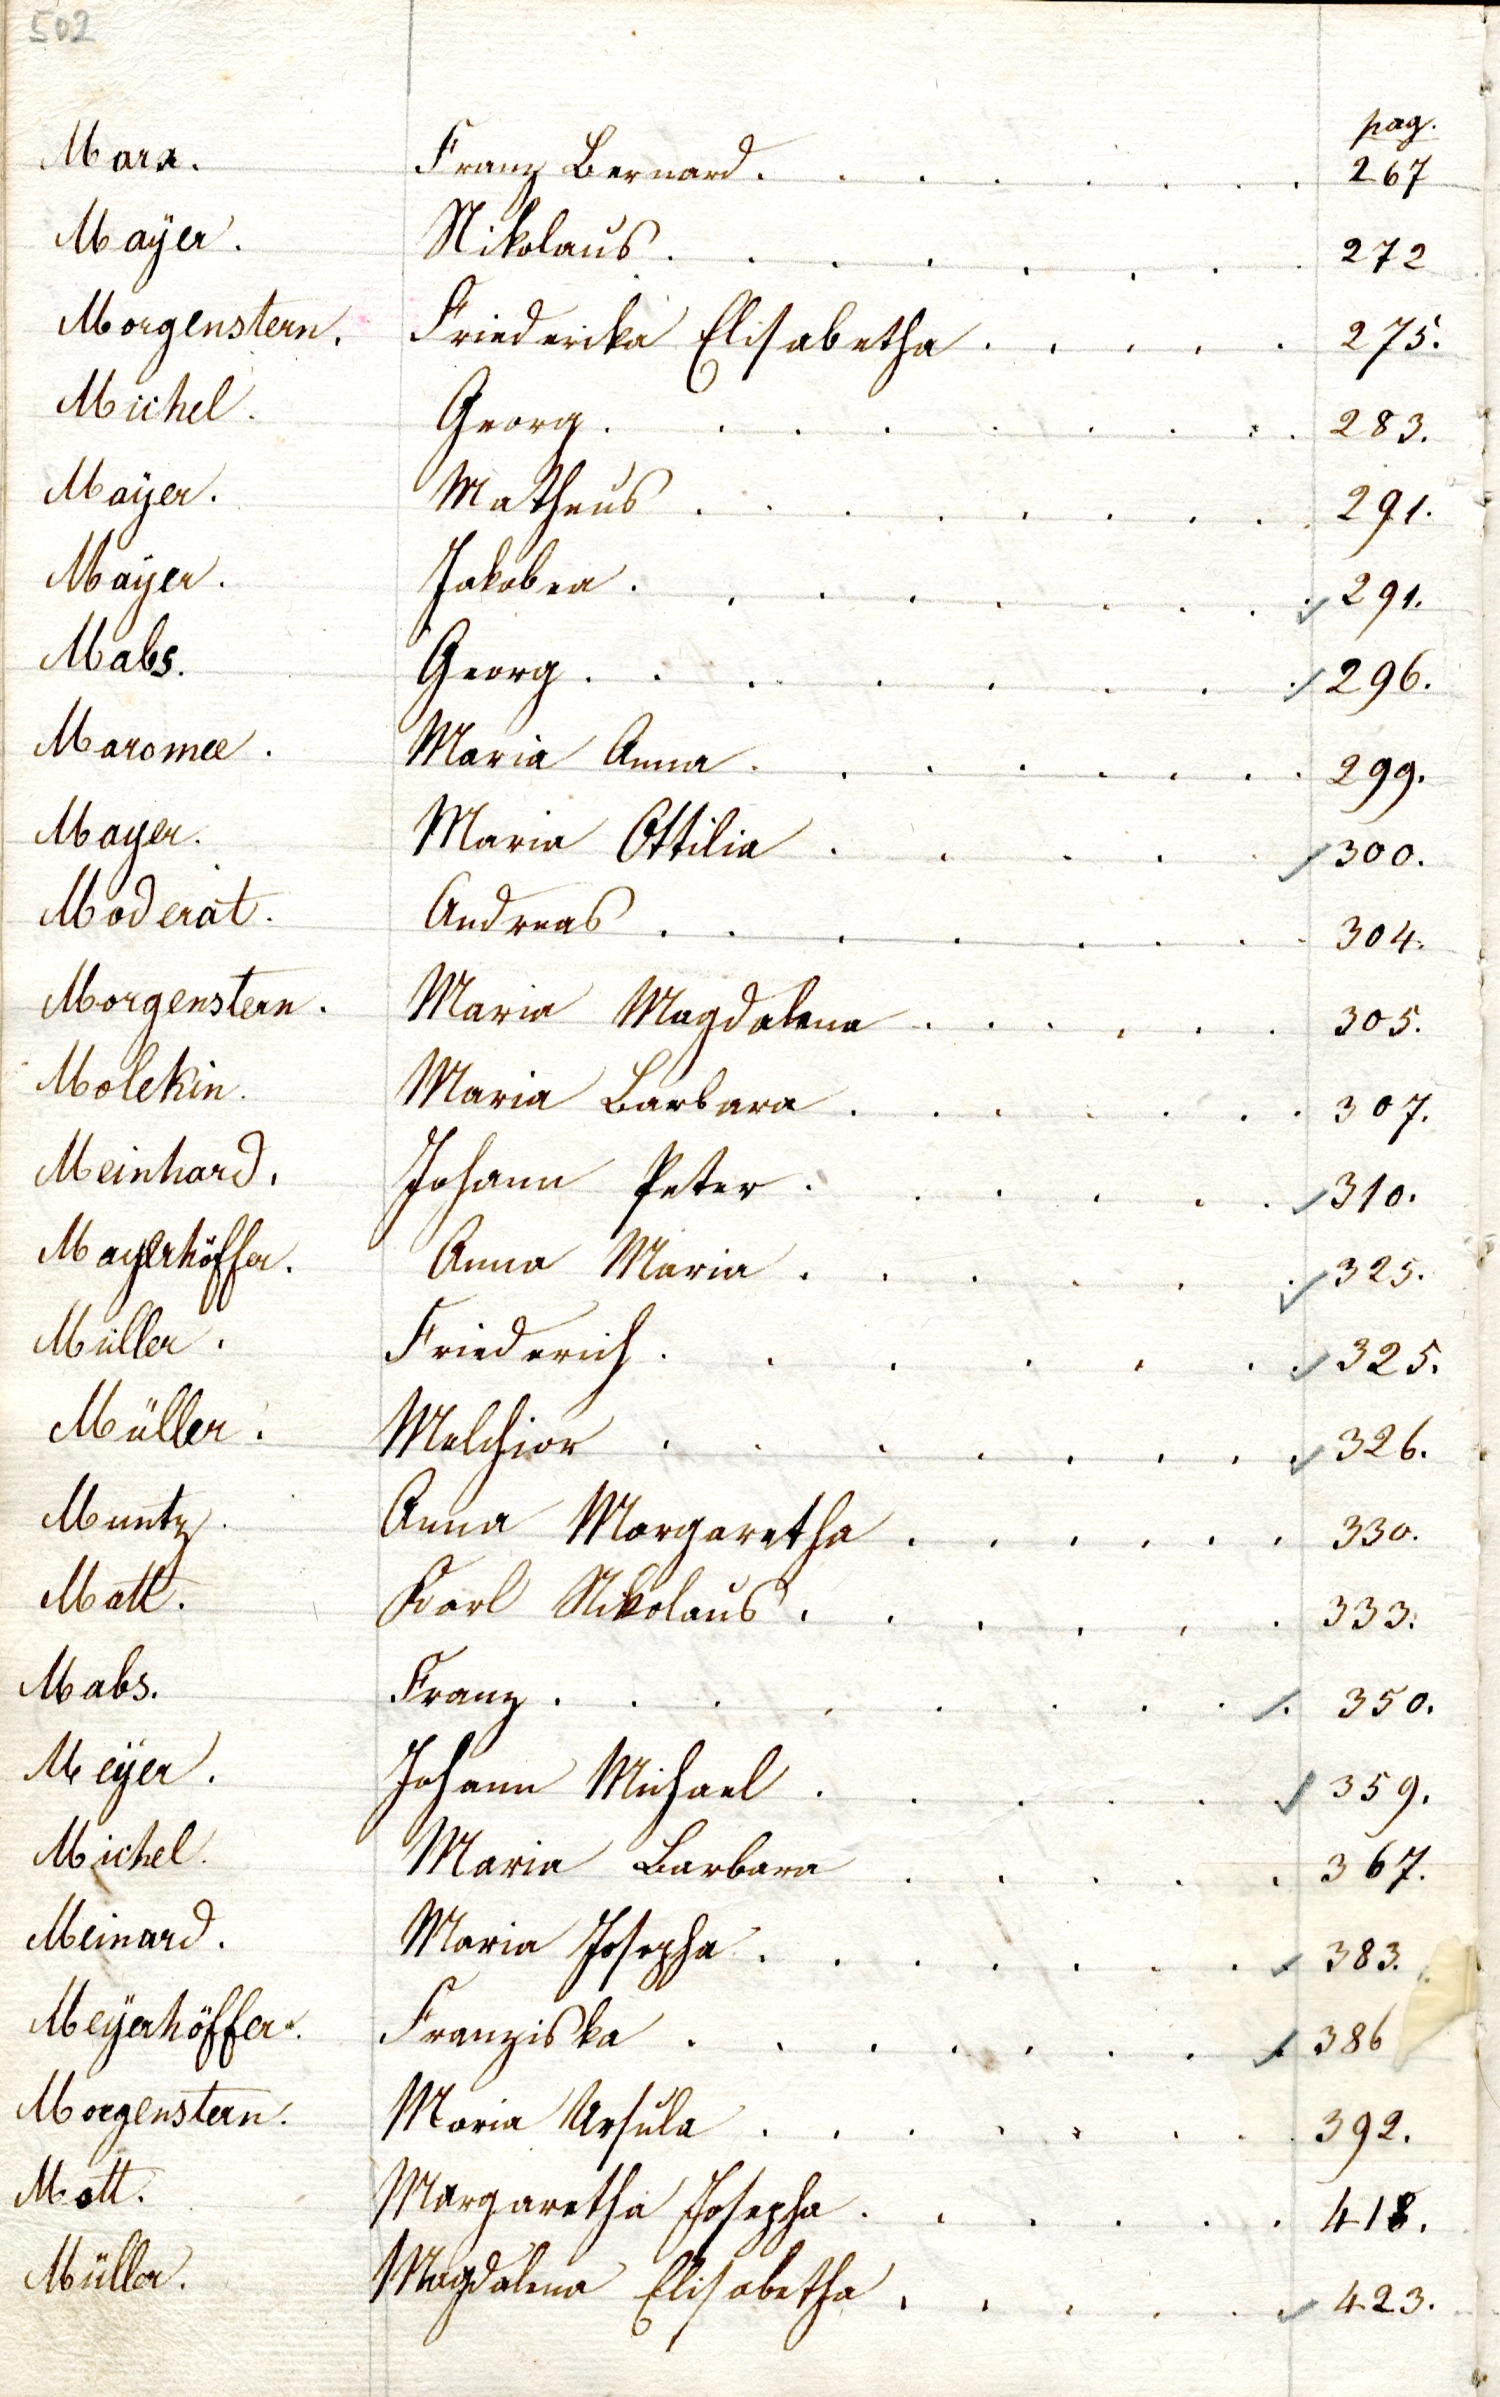 502
pag.
Marx. Franz Bernard. . . . . . . 267
Mayer. Nikolaus. . . . . . . . 272
Morgenstern. Friederika Elisabetha . . . . . 275.
Michel. Georg. . . . . . . . 283.
Mayer. Matheus . . . . . . . . 291.
Mayer. Jakobea . . . . . . . . 291.
Mabs. Georg. . . . . . . . 296.
Maromee. Maria Anna. . . . . . . 299.
Mayer. Maria Ottilia . . . . . 300.
Moderat. Andreas . . . . . . . 304.
Morgenstern. Maria Magdalena . . . . . . 305.
Molekin. Maria Barbara . . . . . . . 307.
Meinhard. Johann Peter. . . . . . 310.
Mayerhöffer. Anna Maria . . . . . . 325.
Müller. Friederich. . . . . . . 325.
Müller. Melchior . . . . . . . . 326.
Muntz. Anna Margaretha . . . . . . . 330.
Matt. Karl Nikolaus. . . . . . 333.
Mabs. Franz . . . . . . . . . 350.
Meÿer. Johann Michael . . . . . . 359.
Michel. Maria Barbara . . . . . 367.
Meinard. Maria Josepha . . . . . . . . 383.
Meÿerhöffer. Franziska . . . . . . . . 386
Morgenstern. Maria Ursula . . . . . . . 392.
Mott. Margaretha Josepha. . . . . . 418.
Müller. Magdalena Elisabetha . . . . . 423.